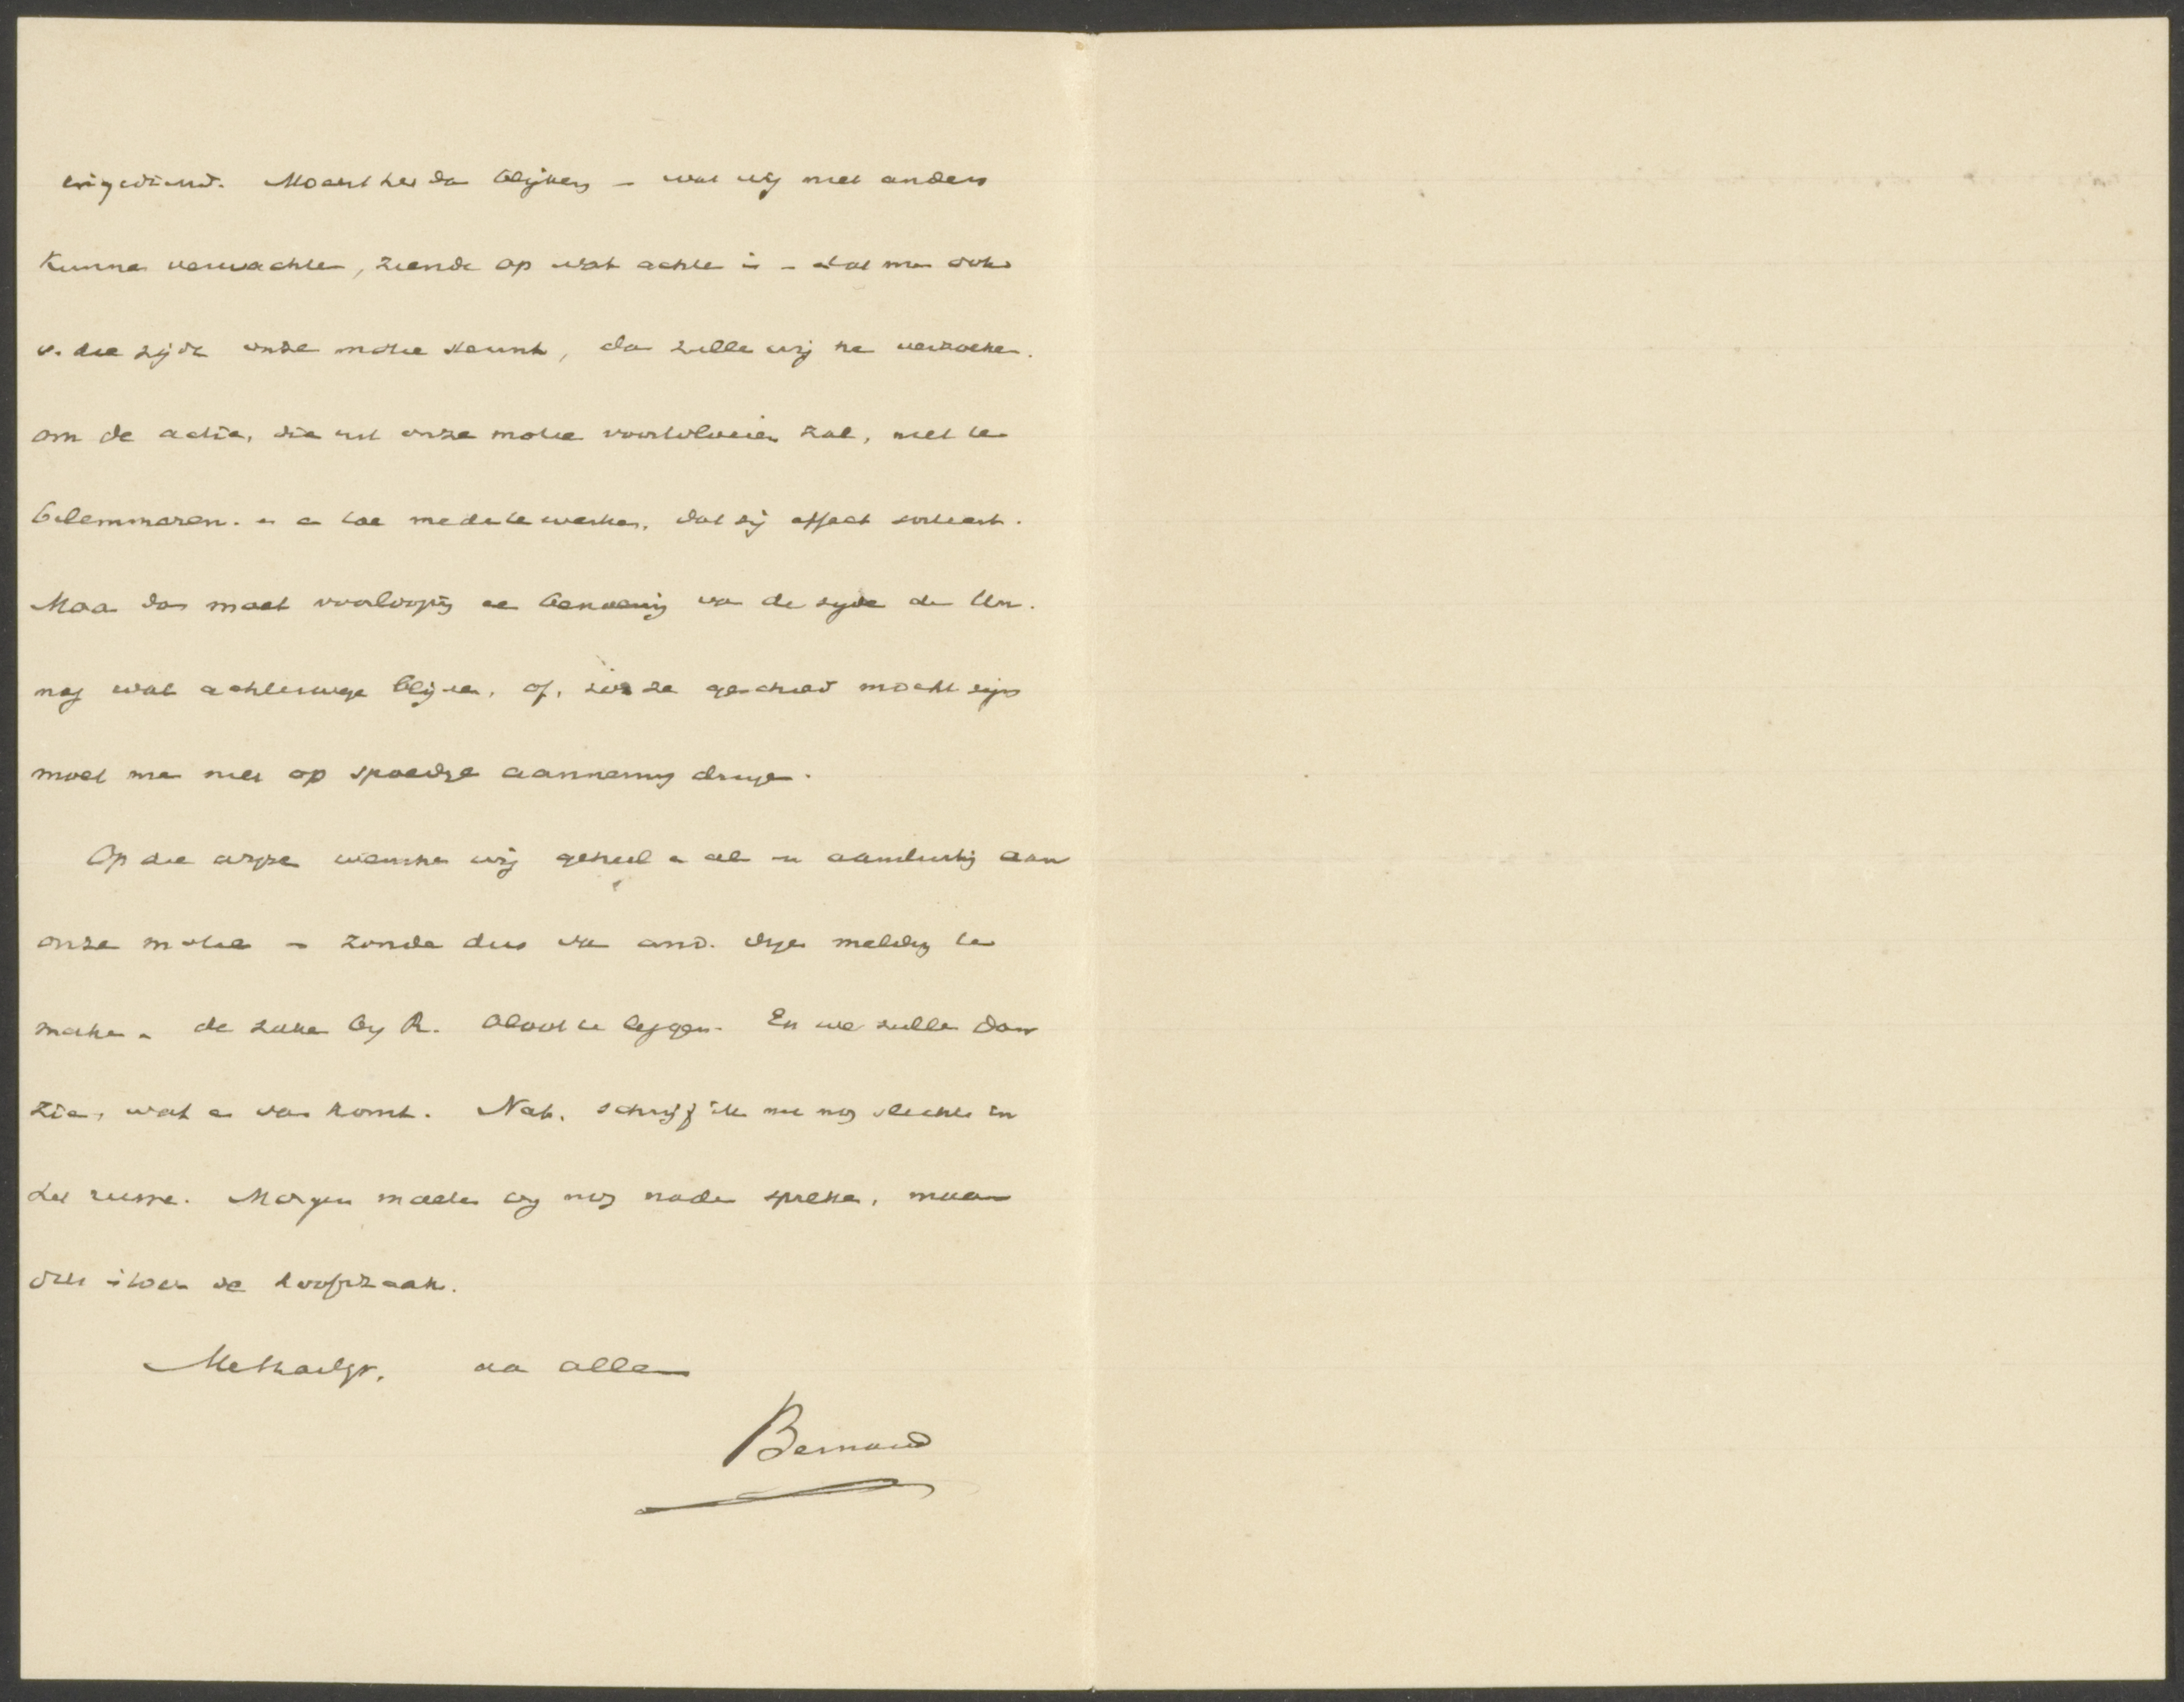 ingediend. Mocht het da blijken – wat wij niet anders
kunne verwachte, ziende op wat achte is – dat me ook
v. die zijde onze motie steunt, da zulle wij he verzoeken.
om de actie, die uit onze motie voortvloeien zal, niet te
belemmeren. e e toe mede te werken, dat zij effect sorteert.
Maa da moet voorloopig ee va de zijde de Un.
nog wat achterwege blijve, of, zoo ze geschied mocht zijn
moet me niet op spoedige aanneming dringe.
Op die wijze wensche wij geheel e al aansluitig aan
onze motie – zonde dus va and. dinge melding te
make – de zake bij R. bloot te leggen. En we zulle dan
zie, wat e va komt. Nat. schrijf ik nu nog slechts in
het ruwe. Morgen moete wij nog nade spreke, maar
dit is toch de hoofdzaak.
Met hartlgr. aa alle
Bernard